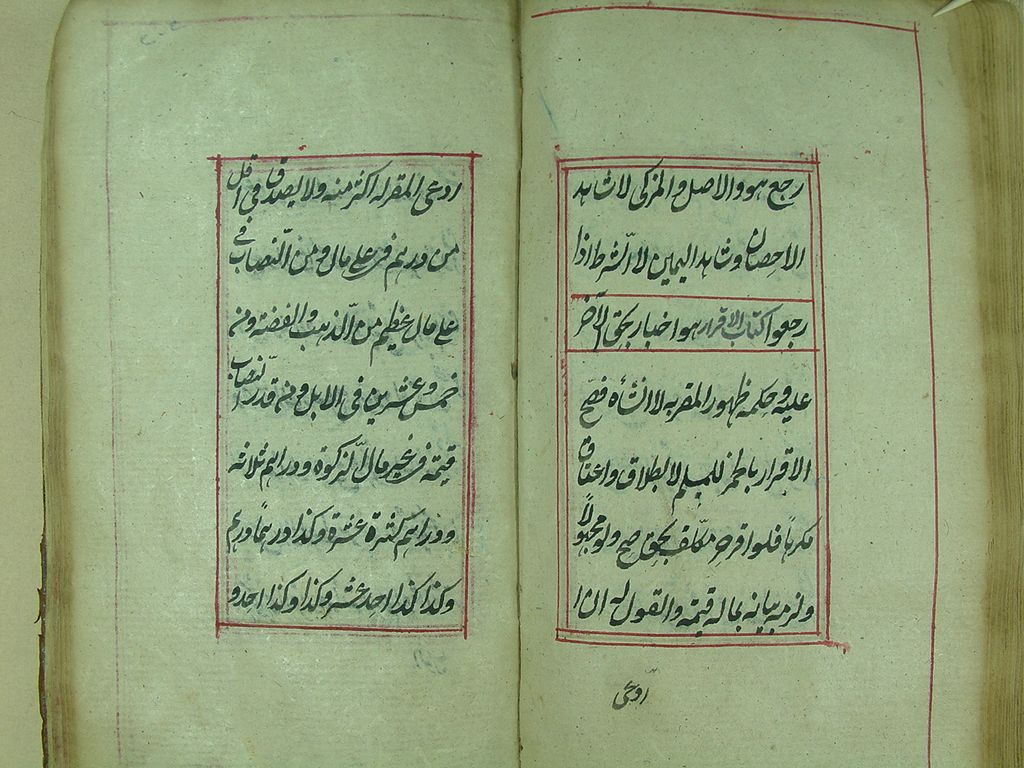 رجع هو والاصل والمزكى لا شاهد
الاحصان وشاهد اليمين لا الشرط اذا
رجعوا كتاب الاقرار هو اخبار بحق لآخر
عليه وحكمه ظهور المقر به لا انشأه فصح
الاقرار بالخمر للمسلم لا بطلاق واعتاق
مكرهاً فلو اقر حر مكلف بحق صح ولو مجهولاً
ولزمه بيانه بماله قيمة والقول له ان ا
دّعى
ادعى المقر له اكثر منه ولا يصدق فى اقل
من درهم فى على مال ومن النصاب فى
على مال عظيم من الذهب والفضة ومن
خمس وعشرين فى الابل ومن قدر النصاب
قيمة فى غير مال الزكوة ودراهم ثلاثة
ودراهم كثيرة عشرة وكذا درهماً درهم
وكذا كذا احد عشر وكذا وكذا احد و